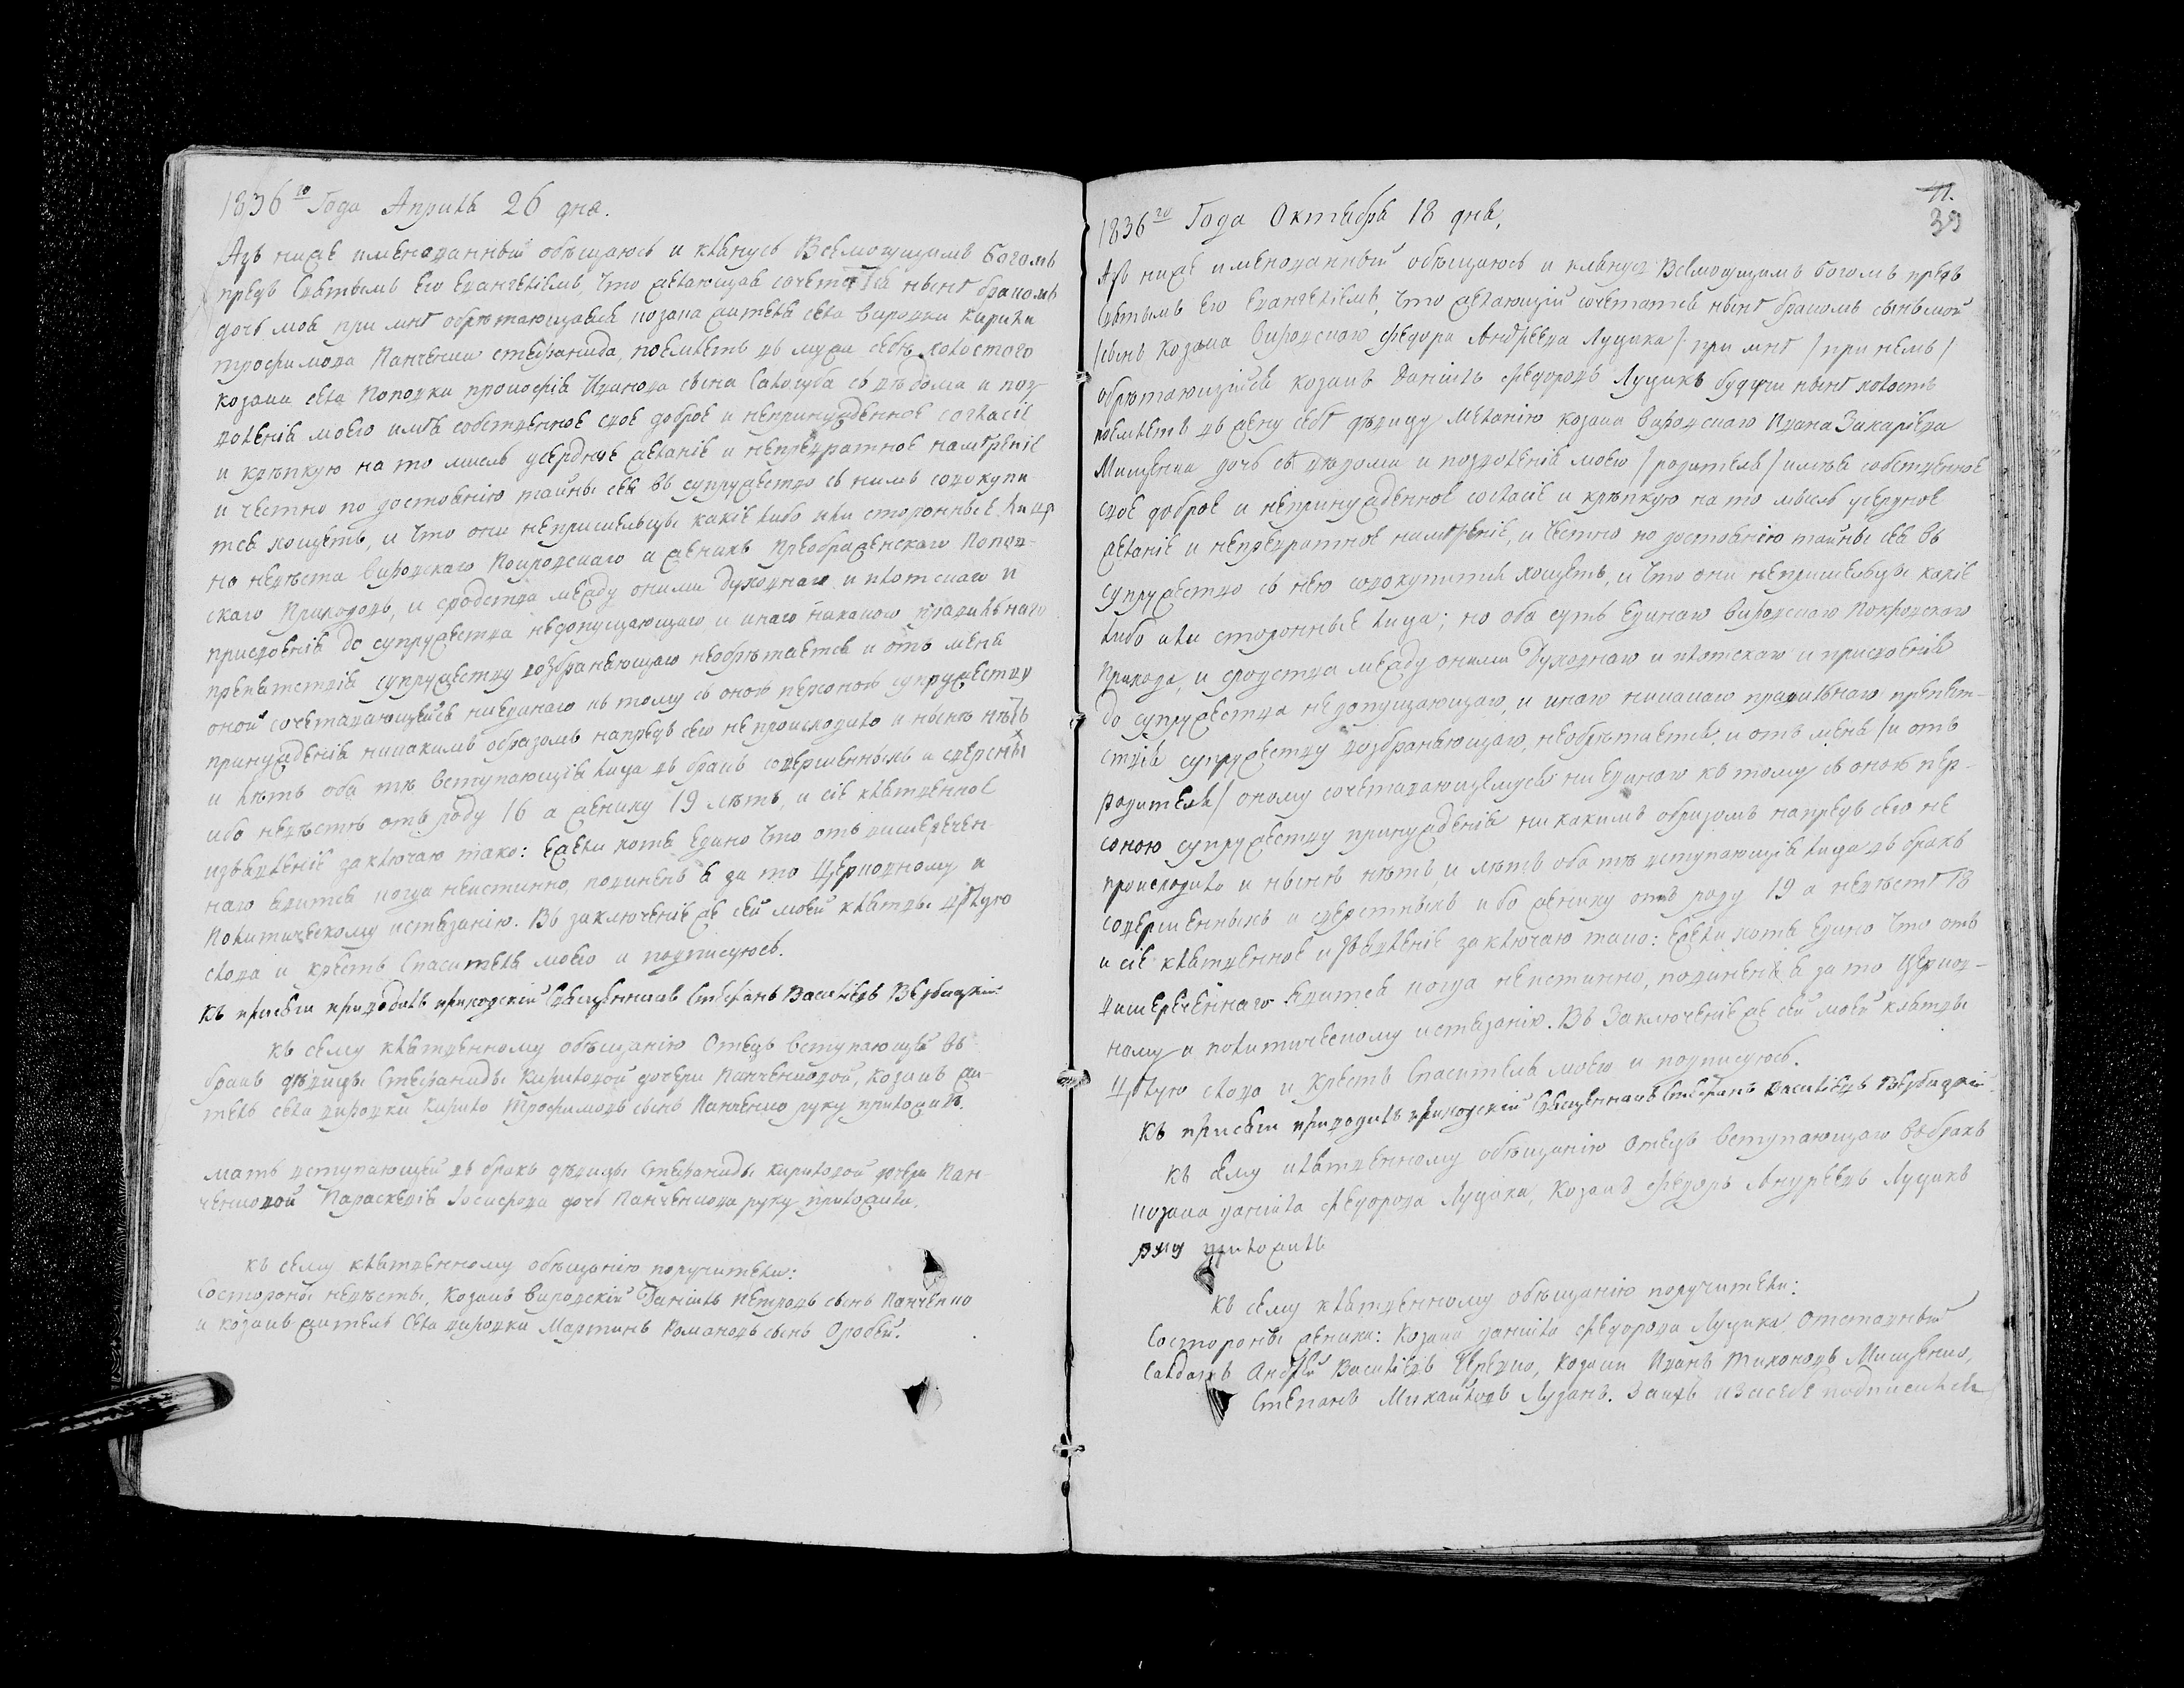 1836го Года Априля 26 дня.
Азъ нижеименованный обѣщаюсь и клянусь Всемогущимъ Богомъ
предъ Святымъ Его Евангелиемъ, что желающая сочетатся нынѣ бракомъ
дочь моя при мнѣ обрѣтающаяся козака жителя села Вировки Кирила
Трофимова Панченка Стефанида, поемлетъ въ мужа себѣ холостого
козака села Поповки Прокофія Иванова сына Сологуба съ вѣдома и поз-
воленія моего имѣя собственное свое доброе и непринужденное согласіе
и крѣпкую на то мысль усердное желаніе и непревратное намѣреніе
и честно по достоянію тайны сея въ супружество съ нимъ совокупи
тся хощетъ, и что они непришельцы какіе либо или сторонныя лица
но невѣста Вировскаго Покровскаго а женихъ Преображенскаго Попов-
скаго Приходовъ, и сродства между оними духовнаго и плотскаго и
присвоенія до супружества недопущающаго, и инаго никакого правильнаго
препятствія супружеству возбраняющаго необрѣтается и отъ мене
оной сочетавающейся ниединаго къ тому съ оною персоною супружеству
принужденія никакимъ образомъ напредъ сего не происходило и нынѣ нѣтъ
и лѣтъ оба тѣ вступающія лица въ бракъ совершенныхъ и сверсны
ибо невѣстѣ отъ роду 16 а жениху 19 лѣтъ, и сіе клятвенное
извявленіе заключаю тако: Ежели хотя едино что отъ вишеречен
наго явится когда неистинно, повиненъ я за то Церковному и
Политическому истязанію. Въ заключеніе же сей моей клятвы цѣлую
слова и крестъ Спасителя моего и подписуюсь.
Къ присяги приводилъ приходскій Священникъ Стефанъ Василіевъ Вербицкій
Къ сему клятвенному обѣщанію Отецъ вступающей въ
бракъ дѣвицы Стефаниды Кириловой дочери Панченковой, Козакъ жи-
тель села Вировки Кирило Трофимовъ сынъ Панченко руку приложилъ.
Мать вступающей въ бракъ дѣвицы Стефаниды Кириловой дочери Пан-
ченковой Параскевія Іосифова дочь Панченкова руку приложила.
Къ сему клятвенному обѣщанію поручители:
Состороны невѣсты, Козакъ Вировскій Даніилъ Петровъ сынъ Панченко
и козакъ житель села Вировки Мартинъ Романовъ сынъ Оробей.
41.
39
1836го Года Октября 18 дня,
Азъ нижеименованный обѣщаюсь и клянусь Всемогущимъ Богомъ предъ
Святымъ Его Евангелиемъ, что желающій сочетатся нынѣ бракомъ сынъ мой
/сынъ Козака Вировскаго Федора Андреева Луцика/ при мнѣ /при немъ/
обрѣтающійся козакъ Даніилъ Федоровъ Луцикъ будучи нынѣ холостъ
поемлетъ въ жену себѣ дѣвицу Меланію козака Вировскаго Ивана Захаріева
Мищенка дочь съ вѣдома и позволенія моего /родителя/ имѣя собственное
свое доброе и непринужденное согласіе и крѣпкую на то мысль усердное
желаніе и непревратное намѣреніе, и честно по достоянію тайны сея въ
супружество съ нею совокупится хощетъ, и что они непришельцы какіе
либо или сторонныя лица; но оба суть единаго Вировскаго Покровскаго
Прихода, и сродства между оними Духовнаго и плотскаго и присвоенія
до супружества недопущающаго, и инаго никакаго правильнаго препят-
ствія супружеству возбраняющаго, необрѣтается; и отъ мене /и отъ
родителя/ оному сочетавающемуся ни единаго къ тому съ оною пер-
соною супружеству принужденія никакимъ образомъ напредъ сего не
происходило и нынѣ нѣтъ, и лѣтъ оба тѣ вступающія лица въ бракъ
совершенныхъ и сверстныхъ ибо жениху отъ роду 19 а невѣстѣ 18
и сіе клятвенное изъявленіе заключаю тако: Ежели хотя едино что отъ
вишереченнаго явится когда неистинно, повиненъ я за то Церков-
ному и политическому истязанію. Въ Заключеніе же сей моей клятвы
цѣлую слова и Крестъ Спасителя моего и подписуюсь.
Къ присяги приводилъ приходскій Священникъ Стефанъ Василіевъ Вербицкій
Къ сему клятвенному обѣщанію Отецъ вступающаго въ бракъ
козака Даніила Федорова Луцика, Козакъ Федоръ Андреевъ Луцикъ
руку приложилъ
Къ сему клятвенному обѣщанію поручители:
Состороны жениха: Козака Даніила Федорова Луцика Отставный
Салдатъ Андрей Василіевъ Козаки Иванъ Тихоновъ Мищенко,
Степанъ Михайловъ Лузанъ. Занихъ изасебе подписался